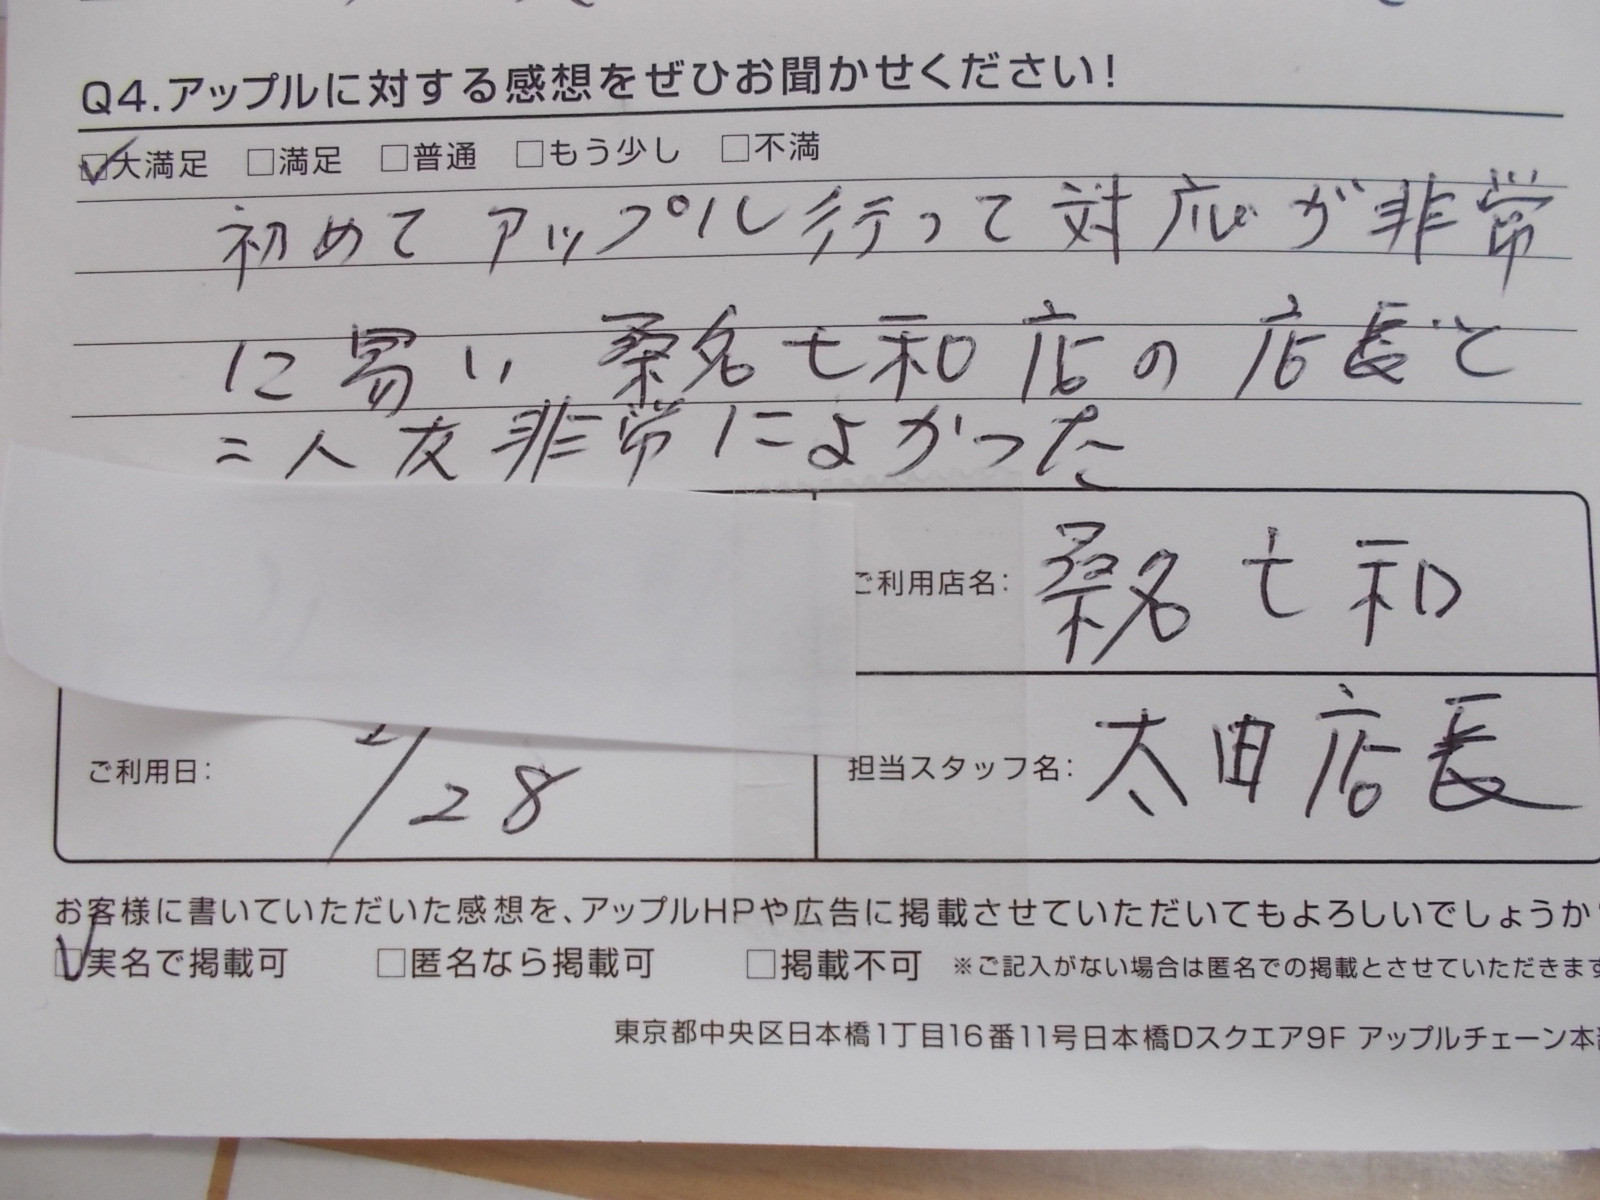 Q4.アップルに対する感想をぜひお聞かせください!
□大満足 □満足 □普通 □もう少し □不満
初めてアップル行って対応が非常
に易い桑名七和店の店長と
二人友非常によかった
ご利用店名: 桑名七和
ご利用日: /28
担当スタッフ名: 太田店長
お客様に書いていただいた感想を、アップルHPや広告に掲載させていただいてもよろしいでしょうか
□実名で掲載可 □匿名なら掲載可 □掲載不可 ※ご記入がない場合は匿名での掲載とさせていただきます
東京都中央区日本橋1丁目16番11号日本橋Dスクエア9F アップルチェーン本部